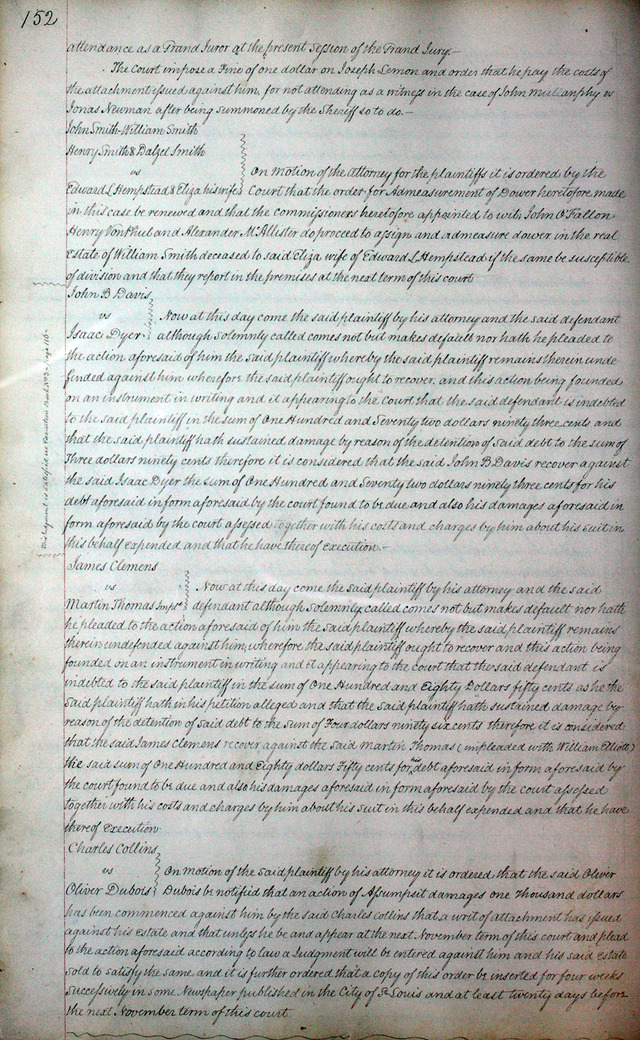 152
attendance as a Grand Juror at the present Session of the Grand Jury.—
The Court impose a Fine of one dollar on Joseph Lemon and order that he pay the costs of
the attachment issued against him, for not attending as a witness in the case of John Mullanphy vs
Jonas Newman after being summoned by the Sheriff so to do.—
John Smith William Smith
Henry Smith & Dalzel Smith
vs On motion of the attorney for the plaintiffs it is ordered by the
Edward L Hempstead & Eliza his wife Court that the order for Admeasurement of Dower heretofore made
in this case be renewed and that the commissioners heretofore appointed to wit, John O'Fallon
Henry VonPhul and Alexander McAllister do proceed to assign and admeasure dower in the real
Estate of William Smith deceased to said Eliza wife of Edward L Hempstead if the same be susceptible
of division and that they report in the premises at the next term of this court
John B Davis
vs Now at this day come the said plaintiff by his attorney and the said defendant
Isaac Dyer although solemnly called comes not but makes default nor hath he pleaded to
the action aforesaid of him the said plaintiff whereby the said plaintiff remains therein unde
fended against him wherefore the said plaintiff ought to recover, and this action being founded
on an instrument in writing and it appearing to the Court that the said defendant is indebted
to the said plaintiff in the sum of One Hundred and Seventy two dollars ninety three cents and
that the said plaintiff hath sustained damage by reason of the detention of said debt to the sum of
Three dollars ninety cents therefore it is considered that the said John B Davis recover against
the said Isaac Dyer the sum of One Hundred and Seventy two dollars ninety three cents for his
debt aforesaid in form aforesaid by the court found to be due and also his damages aforesaid in
form aforesaid by the court assessed together with his costs and charges by him about his suit in
this behalf expended and that he have thereof execution.—
This Judgment is satisfied see Execution Book No 3 page 116
James Clemens
vs Now at this day come the said plaintiff by his attorney and the said
Martin Thomas Impld defendant although solemnly called comes not but makes default nor hath
he pleaded to the action aforesaid of him the said plaintiff whereby the said plaintiff remains
therein undefended against him, wherefore the said plaintiff ought to recover and this action being
founded on an instrument in writing and it appearing to the court that the said defendant is
indebted to the said plaintiff in the sum of One Hundred and Eighty Dollars fifty cents as he the
said plaintiff hath in his petition alleged and that the said plaintiff hath sustained damage by
reason of the detention of said debt to the sum of Four dollars ninety six cents therefore it is considered
that the said James Clemens recover against the said Martin Thomas (impleaded with William Elliott)
the said sum of One Hundred and Eighty dollars Fifty cents for his debt aforesaid in form aforesaid by
the court found to be due and also his damages aforesaid in form aforesaid by the court assessed
together with his costs and charges by him about his suit in this behalf expended and that he have
thereof execution
Charles Collins
vs On motion of the said plaintiff by his attorney it is ordered that the said Oliver
Oliver Dubois Dubois be notified that an action of Assumpsit damages one thousand dollars
has been commenced against him by the said Charles Collins that a writ of attachment has issued
against his Estate and that unless he be and appear at the next November term of this court and plead
to the action aforesaid according to law a Judgment will be entered against him and his said Estate
sold to satisfy the same and it is further ordered that a copy of this order be inserted for four weeks
successively in some Newspaper published in the City of St Louis and at least twenty days before
the next November term of this court